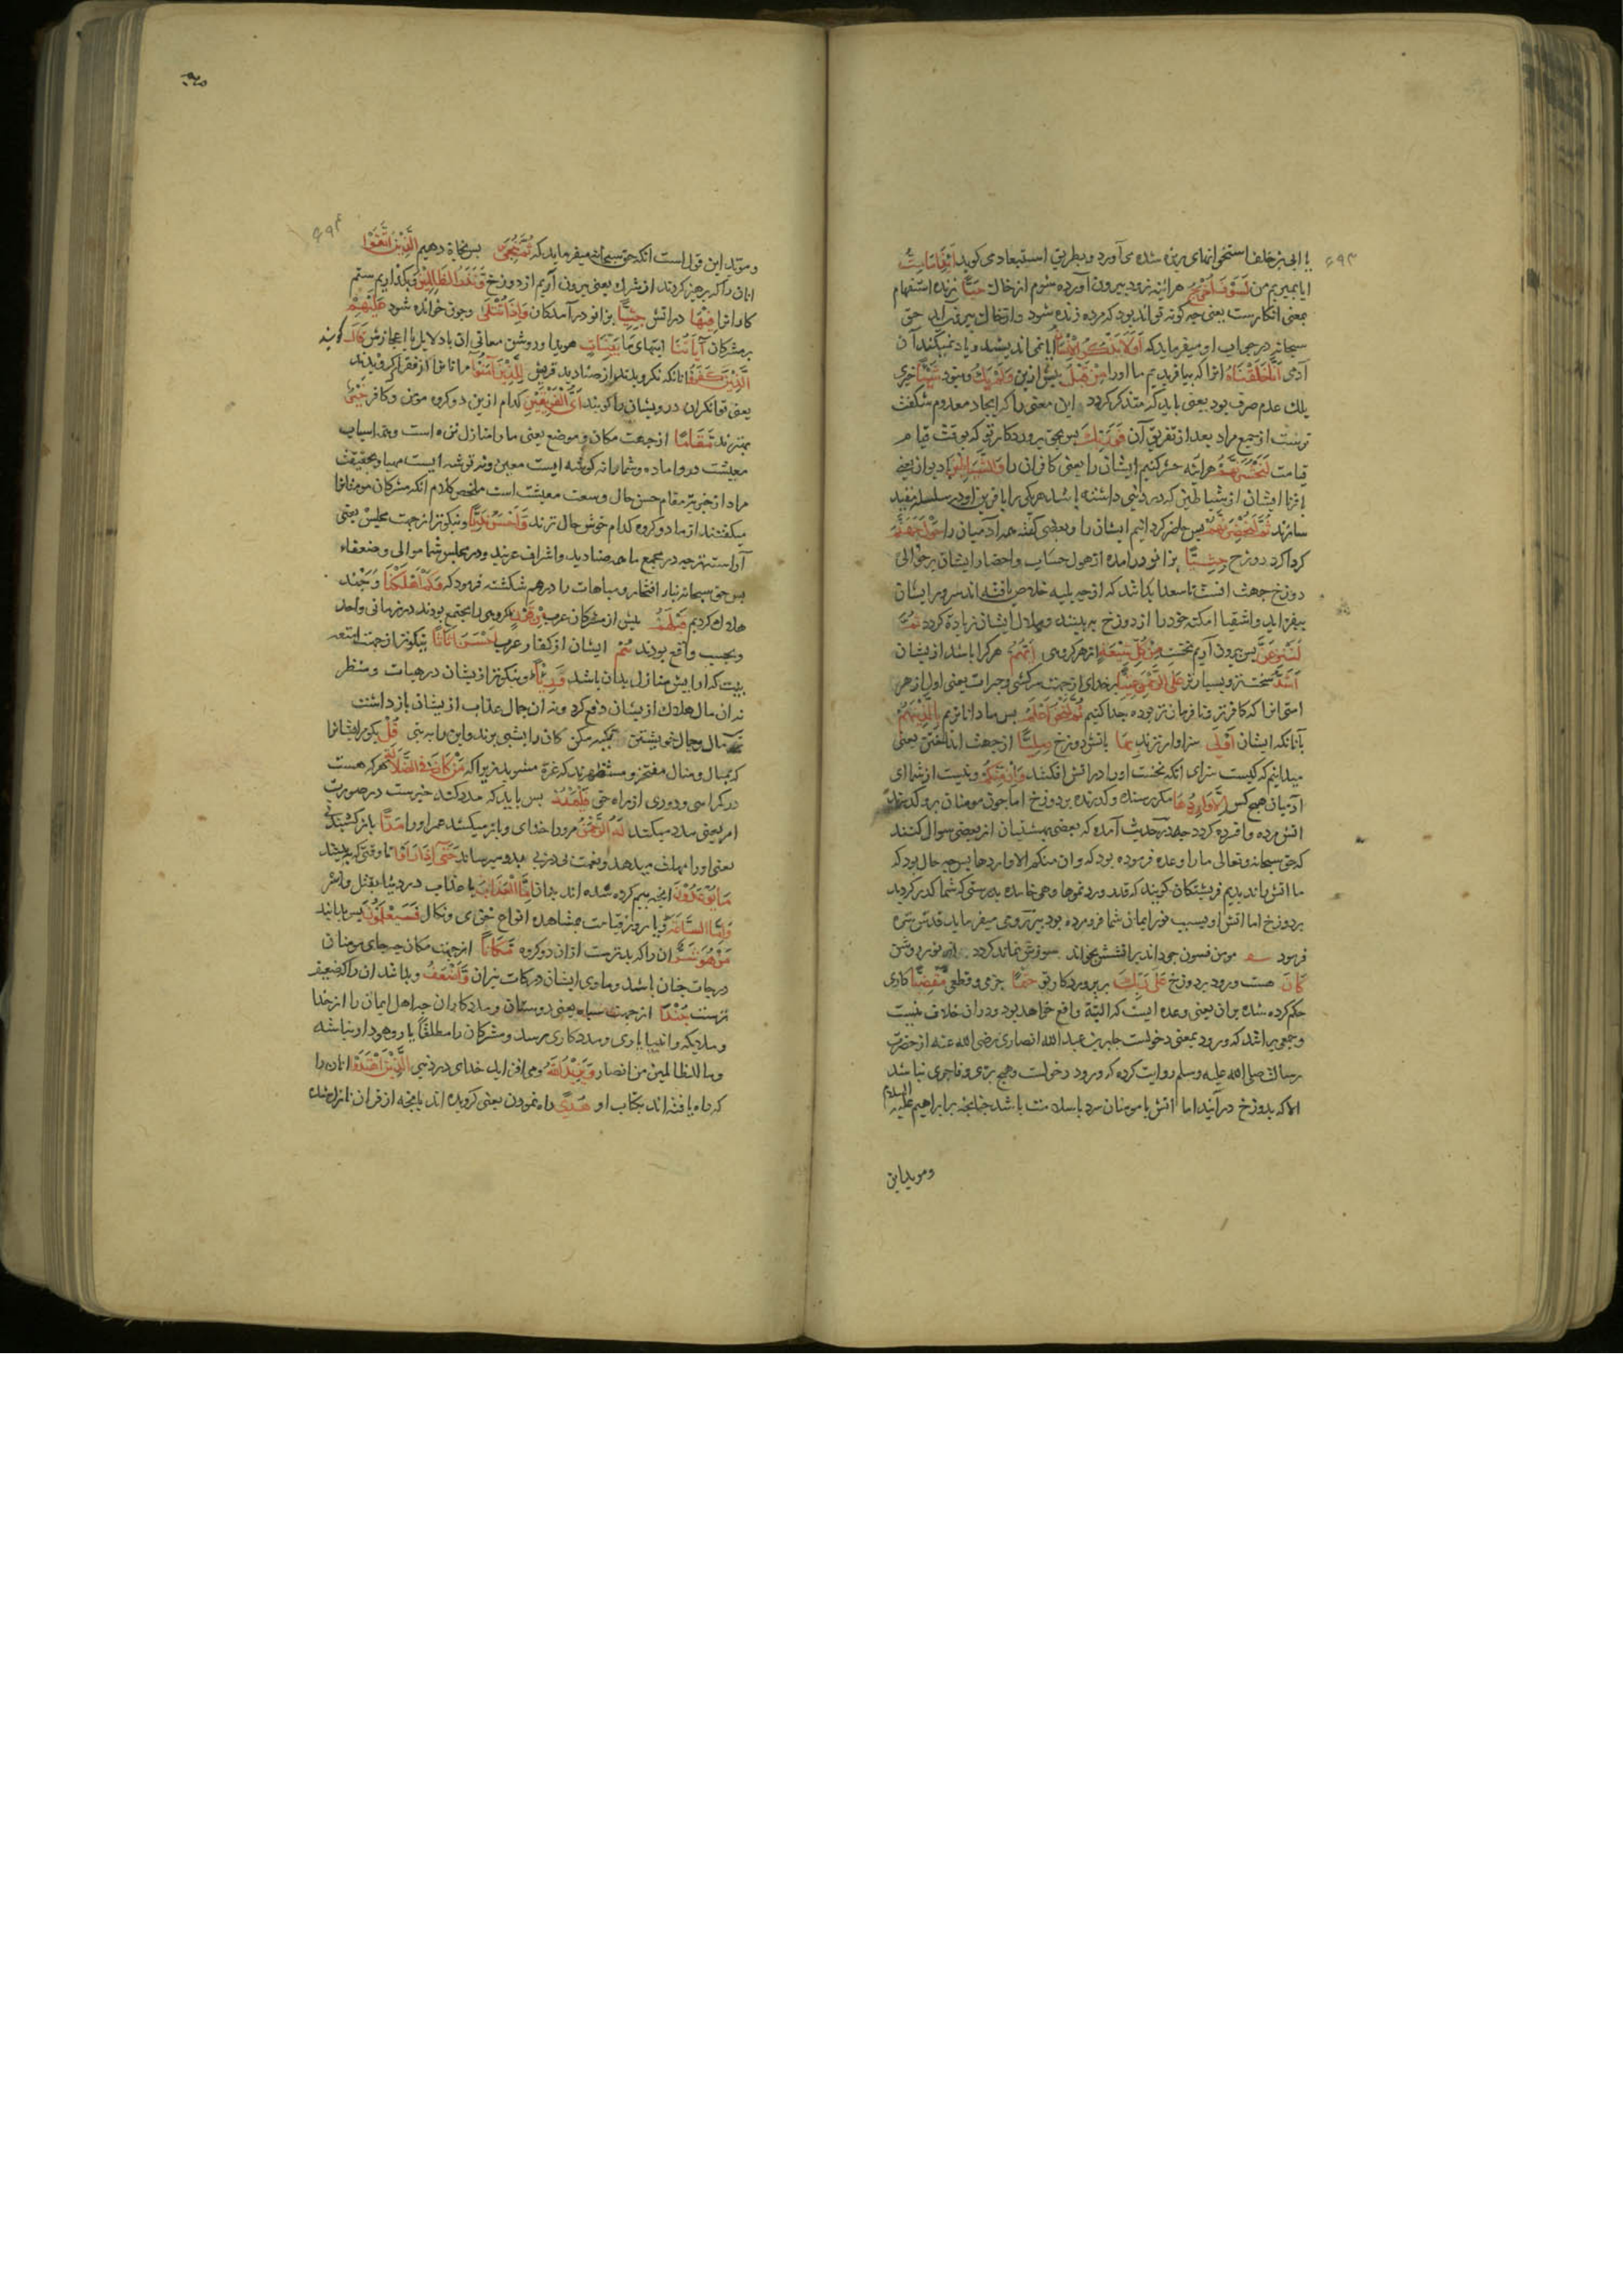 ۶۹۳
یا ابی بن خلف استخوانهای ریزه شده می آورد و بطریق استبعاد می کوید ائذا مامت
ایا بمیریم من لسوف اخرج هراینه زود بیرون آورده شوم از خاک حیا زنده استفهام
بمعنی انکارست یعنی چه کونه تواند بود که مرده زنده شود و از خاک بیرون اید حق
سبحانه در جواب او میفرماید که اولا یذکر الانسان ایا نمی اندیشد و یاد نمیکند آن
آدمی انا خلقناه انرا که بیافریدیم ما اورا من قبل پیش ازین ولم یک و نبود شیئا چیزی
بلک عدم صرف بود یعنی باید که متذکر کردد این معنی را که ایجاد معدوم شکفت
ترست از جمع مراد بعد از تفریق آن فوربک پس بحق پروردکار تو که بوقت قیام
قیامت لنحشرنهم هراینه حشر کنیم ایشان را یعنی کافران را والشیاطین با دیوان یعنی
اقرنا ایشان از شیاطین که در دنیی داشته باشند هر یکی را با قرین او در سلسله بقید
سازند ثم لنحضرنهم پس حاضر کردانیم ایشان را و بعضی کفته همه آدمیان را حول جهنم
کرداکرد دوزخ جثیا بزانو درامده از هول حساب و احضار ایشان بر حوالی
دوزخ جهت انست تا سعدا که از چه بلیه خلاص یافته اند سرور ایشان
بیفزاید و اشقیا امکنه خود را از دوزخ به بینند و ملال ایشان زیادة کردد ثم
لننزعن پس بیرون آریم نخست من کل شیعة از هر کروهی ایهم هر کرا باشد از یشان
اشد سخت تر و بسیارتر علی الرحمن عتیا بر خدای از جهت سرکشی و جرات یعنی اول از هر
امتی انرا که کافرتر و نافرمان تر بوده جدا کنیم ثم لنحن اعلم پس ما داناتریم بالذین هم
بآنانکه ایشان اولی سزاوارترند بها باتش دوزخ صلیا از جهت انداختن یعنی
میدانیم که کیست سزای انکه نخست اورا در اتش افکنند وان منکم و نیست از شما ای
آدمیان هیچ کس الا واردها مکر رسنده و کذرنده بر دوزخ اما چون مومنان برو کذرند
اتش مرده و افسرده کردد چه در حدیث آمده که بعضی بهشتیان از بعضی سوال کنند
که حق سبحانه و تعالی ما را وعده فرموده بود که وان منکم الا واردها پس چه حال بود که
ما اتش را ندیدیم فریشتکان کویند که قد وردتموها وهی خامده بدرستی که شما کذر کردید
بر دوزخ اما اتش او بسبب نور ایمان شما فرو مرده بود پیر رومی میفرماید قدس سره
فرمود مومن فسون جو داند بر اتشش بخواند سوزش نماند کردد چو نور روشن
کان هست ورود بر دوزخ علی ربک بر پروردکار تو حتما جزمی و قطعی مقضیا کاری
حکم کرده شده بران یعنی وعده ایست که البتة واقع خواهد بود و دران خلاف نیست
و جمعی براشد که ورود بمعنی دخولست جابر بن عبد الله انصاری رضی الله عنه از حضرت
رسالت صلی الله علیه وسلم روایت کرده که ورود دخولست و هیچ بری و فاجری نباشد
الا که بدوزخ درآید اما اتش با مومنان سرد باسلامت باشد چنانچه بر ابراهیم علیه السلام
ومویداین
۶۹۴
و موید این قول است انکه حق سبحانه میفرماید که ثم ننجی پس نجاة دهیم الذین اتقوا
انان را که پرهیز کردند از شرک یعنی بیرون آریم از دوزخ ونذر الظالمین و بکذاریم ستم
کارانرا فیها در اتش جثیا بزانو درآمدکان واذا تتلی و چون خوانده شود علیهم
بر مشرکان آیاتنا ایتهای ما بینات هویدا و روشن معانی ان یا دلایل یا اعجازش قال کویند
الذین کفروا انانکه نکرویدند از صنادید قریش للذین آمنوا مر انانرا از فقرا کرویدند
یعنی توانکران درویشان را کویند ای الفریقین کدام ازین دو کروه مومن و کافر خیر
بهترند مقاما از جهت مکان و موضع یعنی ما را منازل نزه است و همه اسباب
معیشت درو اماده و شما را نه کوشه ایست معین و نه توشه ایست مهیا و بحقیقت
مراد از خیر مقام حسن حال و وسعت معیشت است ملخص کلام انکه مشرکان مومنانرا
میکفتند از ما دو کروه کدام خوش حال ترند واحسن ندیا و نیکوتر از جهت مجلس یعنی
آراسته تر چه در مجمع ما همه صنادید و اشراف عربند و در مجلس شما موالی و ضعفاء
پس حق سبحانه تبار افتخار و مباهات را درهم شکسته فرمود که وکم اهلکنا و چند
هلاک کردیم قبلهم پیش از مشرکان عرب من قرن کروهی را مجتمع بودند در زمانی واحد
و بحسب واقع بودند هم ایشان از کفار عرب احسن اثاثا نیکوتر از جهت امتعه
بیت که ارایش منازل بدان باشد ورئیا و نیکوتر از یشان در هیات و منظر
نه ان مال هلاک از یشان دفع کرد و نه ان جمال عذاب از یشان باز داشت
بمال و جمال خویشتن تکیه مکن کان را بشبی برند و این را به تبی قل بکو مر ایشانرا
که بمال و منال مفتخر و مستظهرند که غرة مشوید زیرا که من کان فی الضلالة هر که هست
در کمراهی و دوری از راه حق فلیمدد پس باید که مدد کند خبرست در صورت
امر یعنی مدد میکند له الرحمن مرورا خدای و باز میکشد عمر اورا مدا باز کشیدنی
یعنی اورا مهلت میدهد و نعمت پی در پی بدو میرساند حتی اذا راوا تا وقتی که ببینند
ما یوعدون انچه بیم کرده شده اند بدان اما العذاب یا عذاب در دنیا بقتل و اسر
واما الساعة و یا روز قیامت مشاهده انواع خزی و نکال فسیعلمون پس بدانند
من هو شر ان را که بدترست ازان دو کروه مکانا از جهت مکان چه جای مومنان
درجات جنان باشد و ماوی ایشان درکات نیران واضعف و بدانند ان را که ضعیف
ترست جندا از جهت سپاه یعنی دوستان و مددکاران چه اهل ایمان را از خدا
و ملایکه و انبیا یاری و مددکاری مرسد و مشرکان را مطلقا یار وهودار نباشد
وما للظالمین من انصار ویزید الله و می افزاید خدای در دنیی الذین اهتدوا انان را
که راه یافته اند بکتاب او هدی راه نمودن یعنی کرویده اند بانچه از قران نازل شده